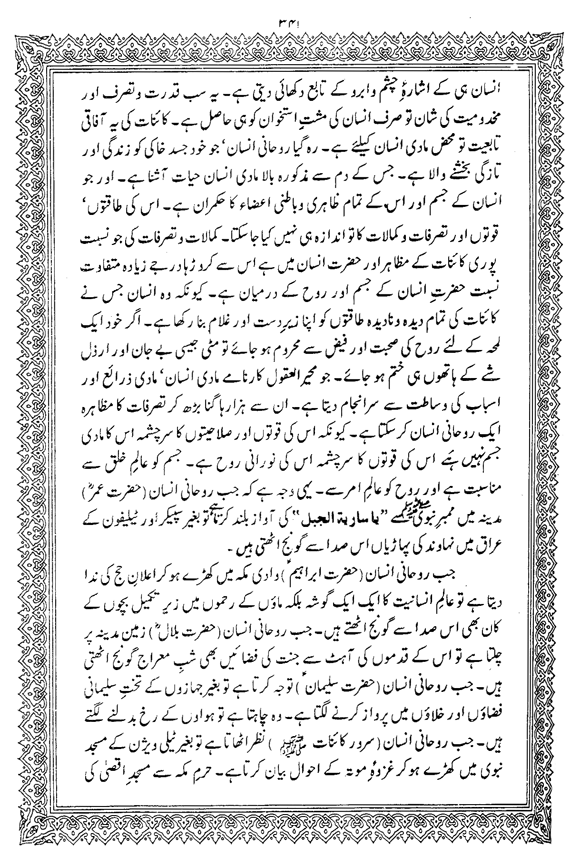 ۳۴۱
انسان ہی کے اشارۂ چشم و ابرو کے تابع دکھائی دیتی ہے۔ یہ سب قدرت و تصرف اور
مخدومیت کی شان تو صرف انسان کی مشتِ استخوان کو ہی حاصل ہے۔ کائنات کی یہ آفاقی
تابعیت تو محض مادی انسان کیلئے ہے۔ رہ گیا روحانی انسان‘ جو خود جسد خاکی کو زندگی اور
تازگی بخشنے والا ہے۔ جس کے دم سے مذکورہ بالا مادی انسان حیات آشنا ہے۔ اور جو
انسان کے جسم اور اس کے تمام ظاہری و باطنی اعضاء کا حکمران ہے۔ اس کی طاقتوں‘
قوتوں اور تصرفات و کمالات کا تو اندازہ ہی نہیں کیا جا سکتا۔ کمالات و تصرفات کی جو نسبت
پوری کائنات کے مظاہر اور حضرت انسان میں ہے اس سے کروڑہا درجے زیادہ متفاوت
نسبت حضرتِ انسان کے جسم اور روح کے درمیان ہے۔ کیونکہ وہ انسان جس نے
کائنات کی تمام دیدہ و نادیدہ طاقتوں کو اپنا زیر دست اور غلام بنا رکھا ہے۔ اگر خود ایک
لمحہ کے لئے روح کی صحبت اور فیض سے محروم ہو جائے تو مٹی جیسی بے جان اور ارذل
شے کے ہاتھوں ہی ختم ہو جائے۔ جو محیر العقول کارنامے مادی انسان‘ مادی ذرائع اور
اسباب کی وساطت سے سرانجام دیتا ہے۔ ان سے ہزارہا گنا بڑھ کر تصرفات کا مظاہرہ
ایک روحانی انسان کر سکتا ہے۔ کیونکہ اس کی قوتوں اور صلاحیتوں کا سرچشمہ اس کا مادی
جسم نہیں ہے اس کی قوتوں کا سرچشمہ اس کی نورانی روح ہے۔ جسم کو عالمِ خلق سے
مناسبت ہے اور روح کو عالمِ امر سے۔ یہی وجہ ہے کہ جب روحانی انسان (حضرت عمرؓ)
مدینہ میں ممبر نبوی ﷺ سے ”یا ساریة الجبل“ کی آواز بلند کرتا ہے تو بغیر سپیکر اور ٹیلیفون کے
عراق میں نہاوند کی پہاڑیاں اس صدا سے گونج اٹھتی ہیں۔
جب روحانی انسان (حضرت ابراہیمؑ) وادی مکہ میں کھڑے ہو کر اعلانِ حج کی ندا
دیتا ہے تو عالمِ انسانیت کا ایک ایک گوشہ بلکہ ماؤں کے رحموں میں زیرِ تکمیل بچوں کے
کان بھی اس صدا سے گونج اٹھتے ہیں۔ جب روحانی انسان (حضرت بلالؓ) زمین مدینہ پر
چلتا ہے تو اس کے قدموں کی آہٹ سے جنت کی فضائیں بھی شبِ معراج گونج اٹھتی
ہیں۔ جب روحانی انسان (حضرت سلیمانؑ) توجہ کرتا ہے تو بغیر جہازوں کے تختِ سلیمانی
فضاؤں اور خلاؤں میں پرواز کرنے لگتا ہے۔ وہ چاہتا ہے تو ہواوں کے رخ بدلنے لگتے
ہیں۔ جب روحانی انسان (سرور کائنات ﷺ) نظر اٹھاتا ہے تو بغیر ٹیلی ویژن کے مسجد
نبوی میں کھڑے ہو کر غزوۂ موتہ کے احوال بیان کرتا ہے۔ حرمِ مکہ سے مسجدِ اقصیٰ کی